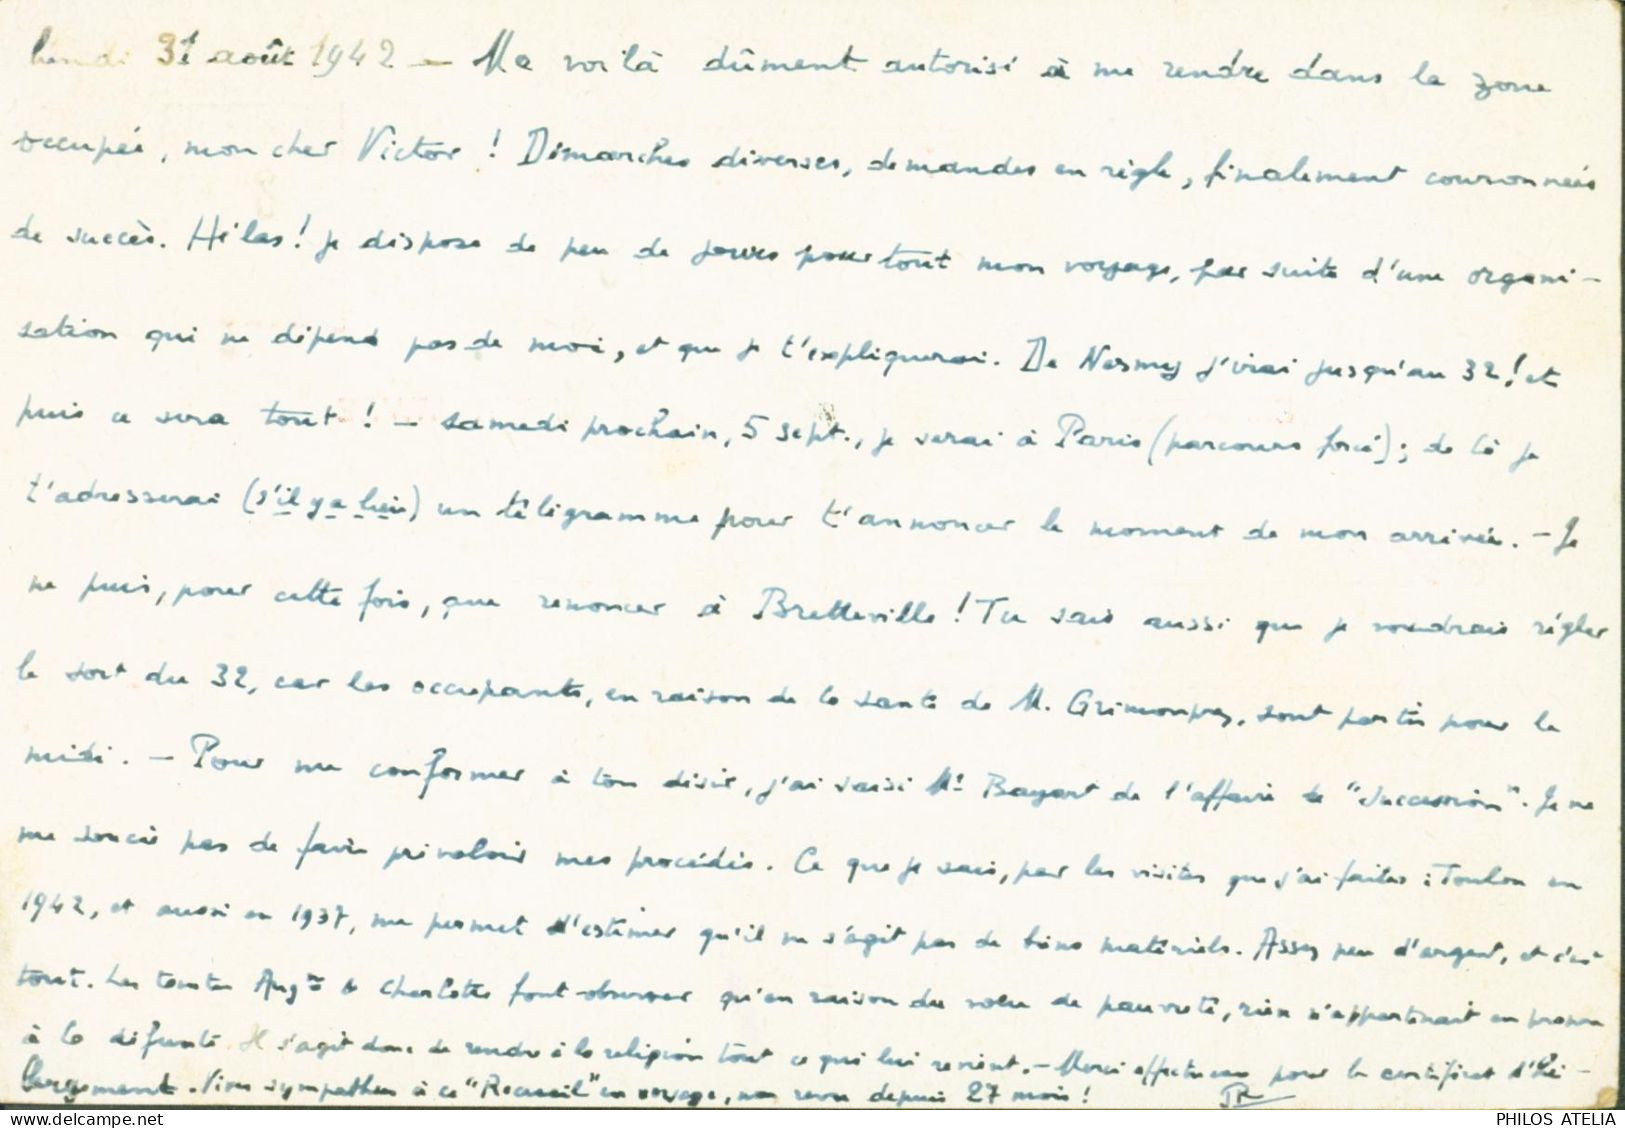 lundi 31 août 1942 — Me voilà dûment autorisé à me rendre dans la zone
occupée, mon cher Victor ! Démarches diverses, demandes en règle, finalement couronnées
de succès. Hélas ! je dispose de peu de jours pour tout mon voyage, par suite d'une organi-
sation qui ne dépend pas de moi, et que je t'expliquerai. De Nesmy j'irai jusqu'au 32 ! et
puis ce sera tout ! — Samedi prochain, 5 sept., je serai à Paris (parcours forcé) ; de là je
t'adresserai (s'il y a lieu) un télégramme pour t'annoncer le moment de mon arrivée. — Je
ne puis, pour cette fois, que renoncer à Bretteville ! Tu sais aussi que je voudrais régler
le sort du 32, car les occupants, en raison de la santé de M. Grimonprez, sont partis pour le
midi. — Pour me conformer à ton désir, j'ai saisi Me Bayart de l'affaire de "succession". Je ne
me soucie pas de faire prévaloir mes procédés. Ce que je sais, par les visites que j'ai faites à Toulon en
1942, et aussi en 1937, me permet d'estimer qu'il ne s'agit pas de biens matériels. Assez peu d'argent, et c'est
tout. Les tantes Augne & Charlotte font observer qu'en raison du voeu de pauvreté, rien n'appartenait en propre
à la défunte. Il s'agit donc de rendre à la religion tout ce qui lui revient. — Merci affectueux pour le certificat d'hé-
bergement. Vives sympathies à ce "Recueil" en voyage, non revu depuis 27 mois ! JR
PHILOS ATELIA